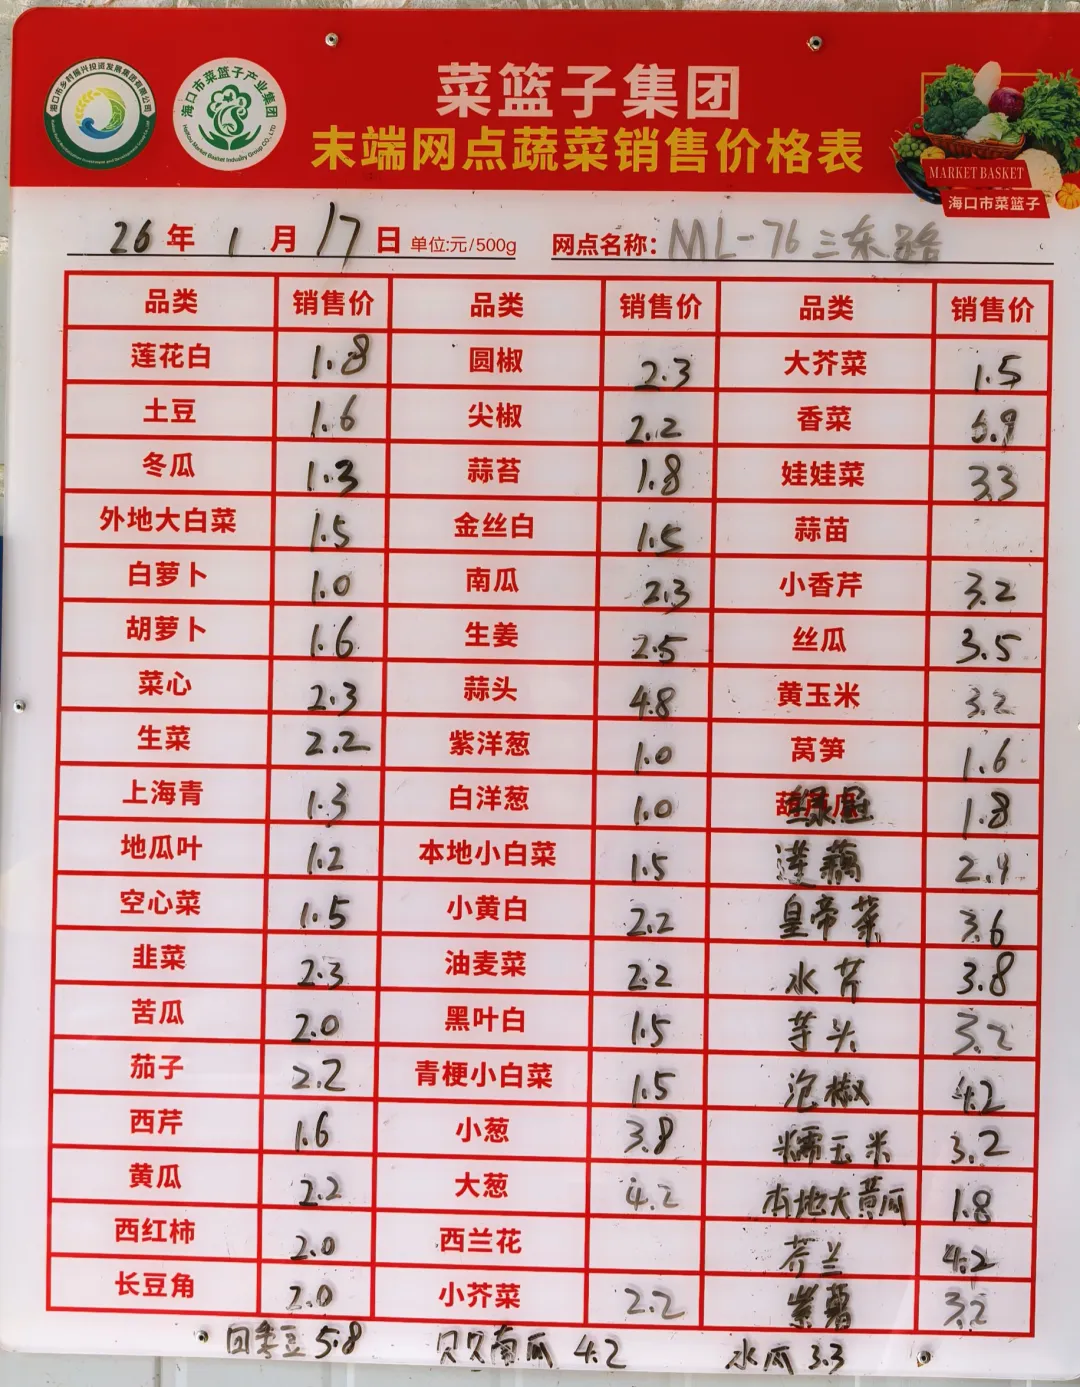 海口市乡村振兴投资发展集团有限公司
海口市菜篮子产业集团
Haikou Market Basket Industry Group CO., LTD
菜篮子集团
末端网点蔬菜销售价格表
MARKET BASKET
海口市菜篮子
26年1月17日 单位:元/500g 网点名称: ML-76三东路
品类 销售价 品类 销售价 品类 销售价
莲花白 1.8 圆椒 2.3 大芥菜 1.5
土豆 1.6 尖椒 2.2 香菜 6.9
冬瓜 1.3 蒜苔 1.8 娃娃菜 3.3
外地大白菜 1.5 金丝白 1.5 蒜苗
白萝卜 1.0 南瓜 2.3 小香芹 3.2
胡萝卜 1.6 生姜 2.5 丝瓜 3.5
菜心 2.3 蒜头 4.8 黄玉米 3.2
生菜 2.2 紫洋葱 1.0 莴笋 1.6
上海青 1.3 白洋葱 1.0 1.8
地瓜叶 1.2 本地小白菜 1.5 莲藕 2.9
空心菜 1.5 小黄白 2.2 皇帝菜 3.6
韭菜 2.3 油麦菜 2.2 水芹 3.8
苦瓜 2.0 黑叶白 1.5 芋头 3.2
茄子 2.2 青梗小白菜 1.5 泡椒 4.2
西芹 1.6 小葱 3.8 糯玉米 3.2
黄瓜 2.2 大葱 4.2 本地大黄瓜 1.8
西红柿 2.0 西兰花 芥兰 4.2
长豆角 2.0 小芥菜 2.2 紫薯 3.2
回季豆 5.8 贝贝南瓜 4.2 水瓜 3.3